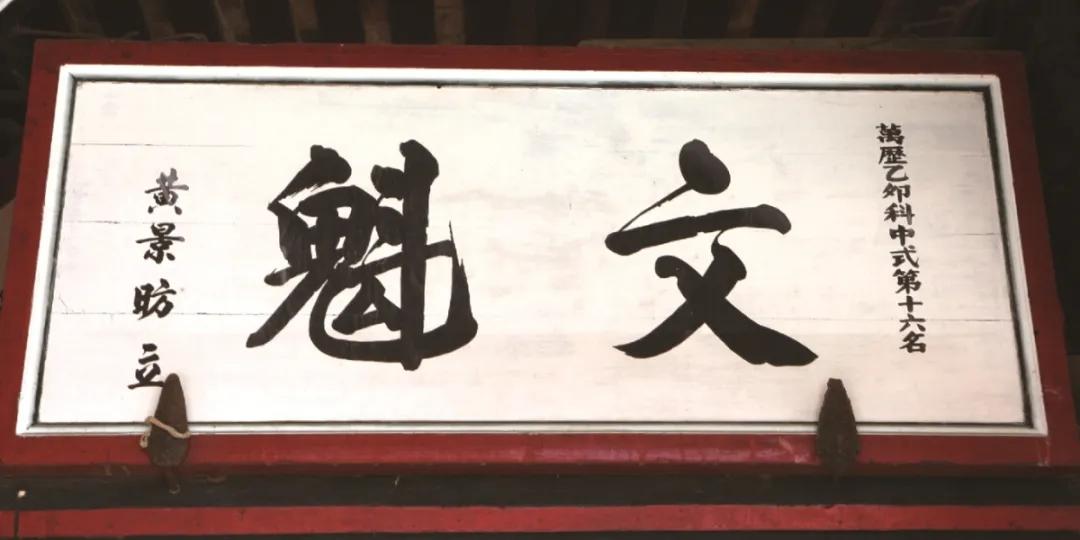 萬歷乙卯科中式第十六名
文魁
黄景昉立